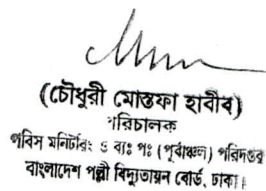 (চৌধুরী মোস্তফা হাবীব)
পরিচালক
পবিস মনিটরিং ও ব্যঃ পঃ (পূর্বাঞ্চল) পরিদপ্তর
বাংলাদেশ পল্লী বিদ্যুতায়ন বোর্ড, ঢাকা।